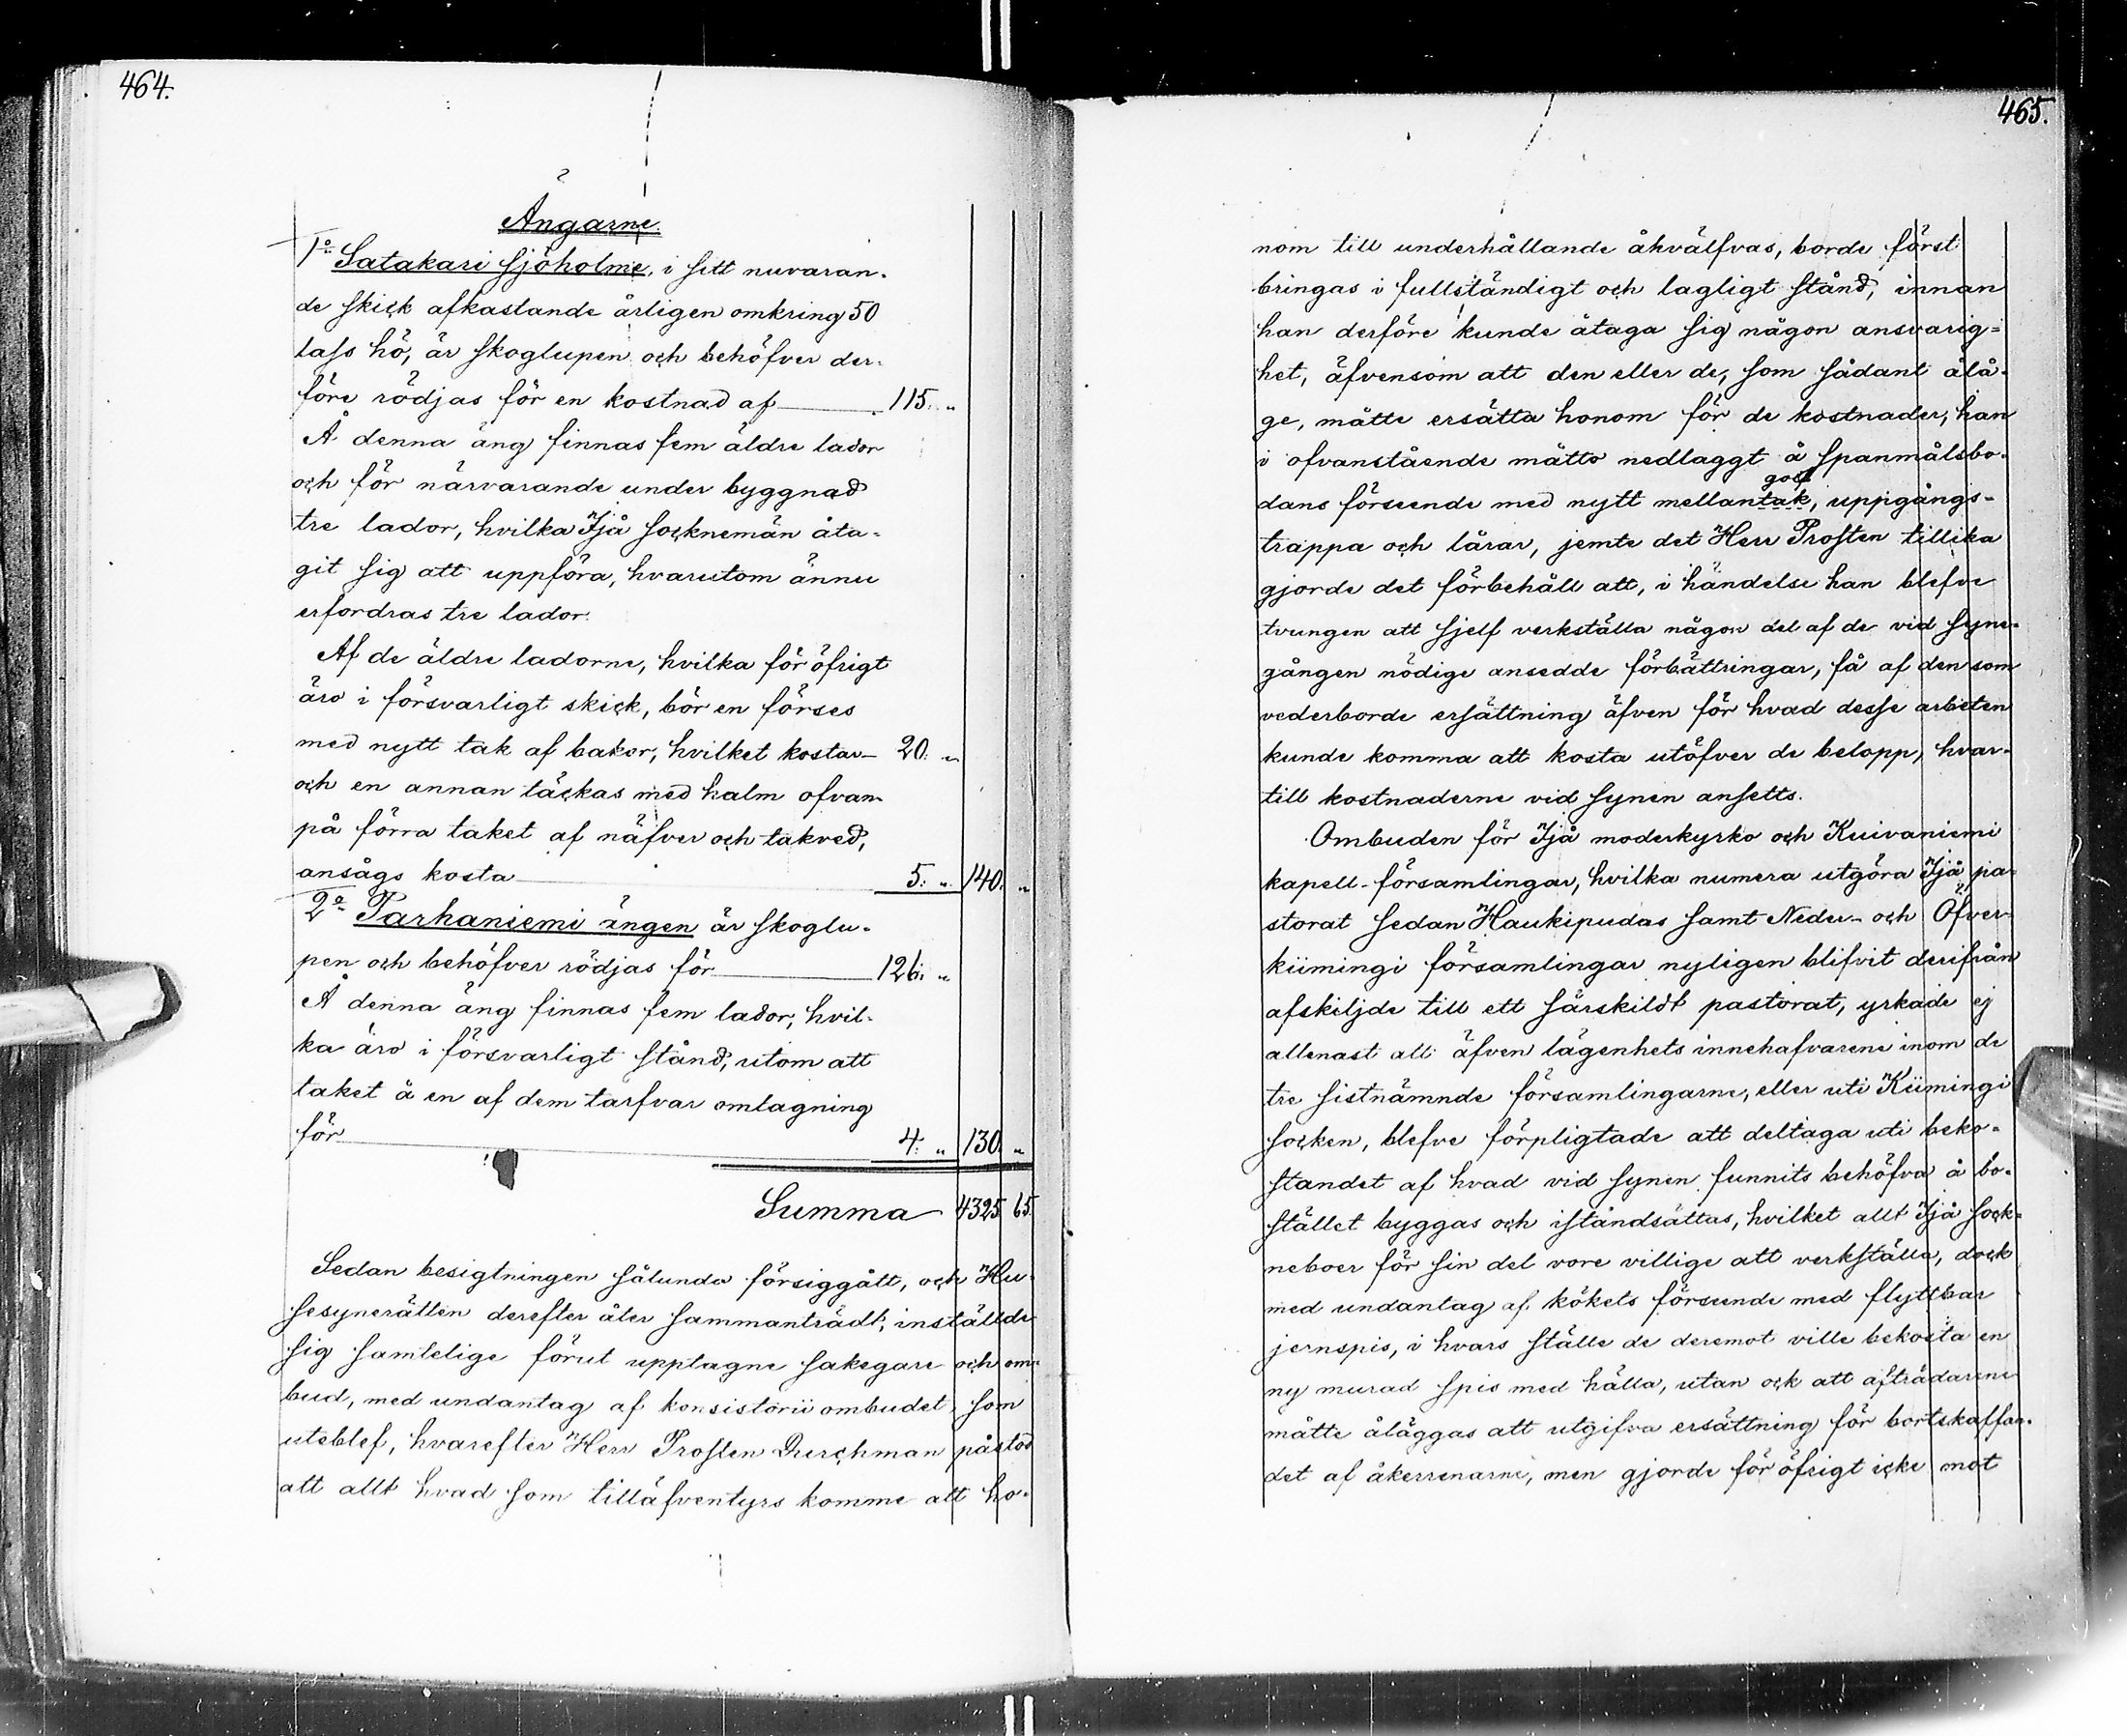 464.
Ängarne.
1o Satakari sjöholme, i sitt nuvaran-
de skick afkastande årligen omkring 50
lass hö, är skoglupen och behöfver der-
före rödjas för en kostnad af 115. „
Å denna äng finnas fem äldre lador
och för närvarande under byggnad
tre lador, hvilka Ijå socknemän åta-
git sig att uppföra, hvarutom ännu
erfordras tre lador.
Af de äldre ladorne, hvilka för öfrigt
äro i försvarligt skick, bör en förses
med nytt tak af bakor, hvilket kostar 20: „
och en annan täckas med halm ofvan-
på förra taket af näfver och takved,
ansågs kosta 5: „ 140. „
2o Tarhaniemi ängen är skoglu-
pen och behöfver rödjas för 126: „
Å denna äng finnas fem lador, hvil-
ka äro i försvarligt stånd, utom att
taket å en af dem tarfvar omlagning
för 4: „ 130. „
Summa 4325 65.
Sedan besigtningen sålunda försiggått, och Hu-
sesynerätten derefter åter sammanträdt, inställde
sig samtelige förut upptagne sakegare och om-
bud, med undantag af konsistorii ombudet, som
uteblef, hvarefter Herr Prosten Durchman påstod
att allt hvad som tilläfventyrs komme att ho-
465.
nom till underhållande åhvälfvas, borde först
bringas i fullständigt och lagligt stånd, innan
han derföre kunde åtaga sig någon ansvarig-
het, äfvensom att den eller de, som sådant ålå-
ge, måtte ersätta honom för de kostnader, han
i ofvanstående måtto nedlaggt å spanmålsbo-
golf
dans förseende med nytt mellantak, uppgångs-
trappa och lårar, jemte det Herr Prosten tillika
gjorde det förbehåll att, i händelse han blefve
tvungen att sjelf verkställa någon del af de vid syne-
gången nödige ansedde förbättringar, få af den som
vederborde ersättning äfven för hvad desse arbeten
kunde komma att kosta utöfver de belopp, hvar-
till kostnaderne vid synen ansetts.
Ombuden för Ijå moderkyrko och Kuivaniemi
kapell-församlingar, hvilka numera utgöra Ijå pa-
storat sedan Haukipudas samt Neder- och Öfver-
kiimingi församlingar nyligen blifvit derifrån
afskiljde till ett särskildt pastorat, yrkade ej
allenast att äfven lägenhets innehafvarene inom de
tre sistnämnde församlingarne, eller uti Kiimingi
socken, blefve förpligtade att deltaga uti beko-
standet af hvad vid synen funnits behöfva å bo-
stället byggas och iståndsättas, hvilket allt Ijå sock-
neboer för sin del vore villige att verkställa, dock
med undantag af kökets förseende med flyttbar
jernspis, i hvars ställe de deremot ville bekosta en
ny murad spis med hälla, utan ock att afträdarene
måtte åläggas att utgifva ersättning för bortskaffan-
det af åkerrenarne, men gjorde för öfrigt icke mot